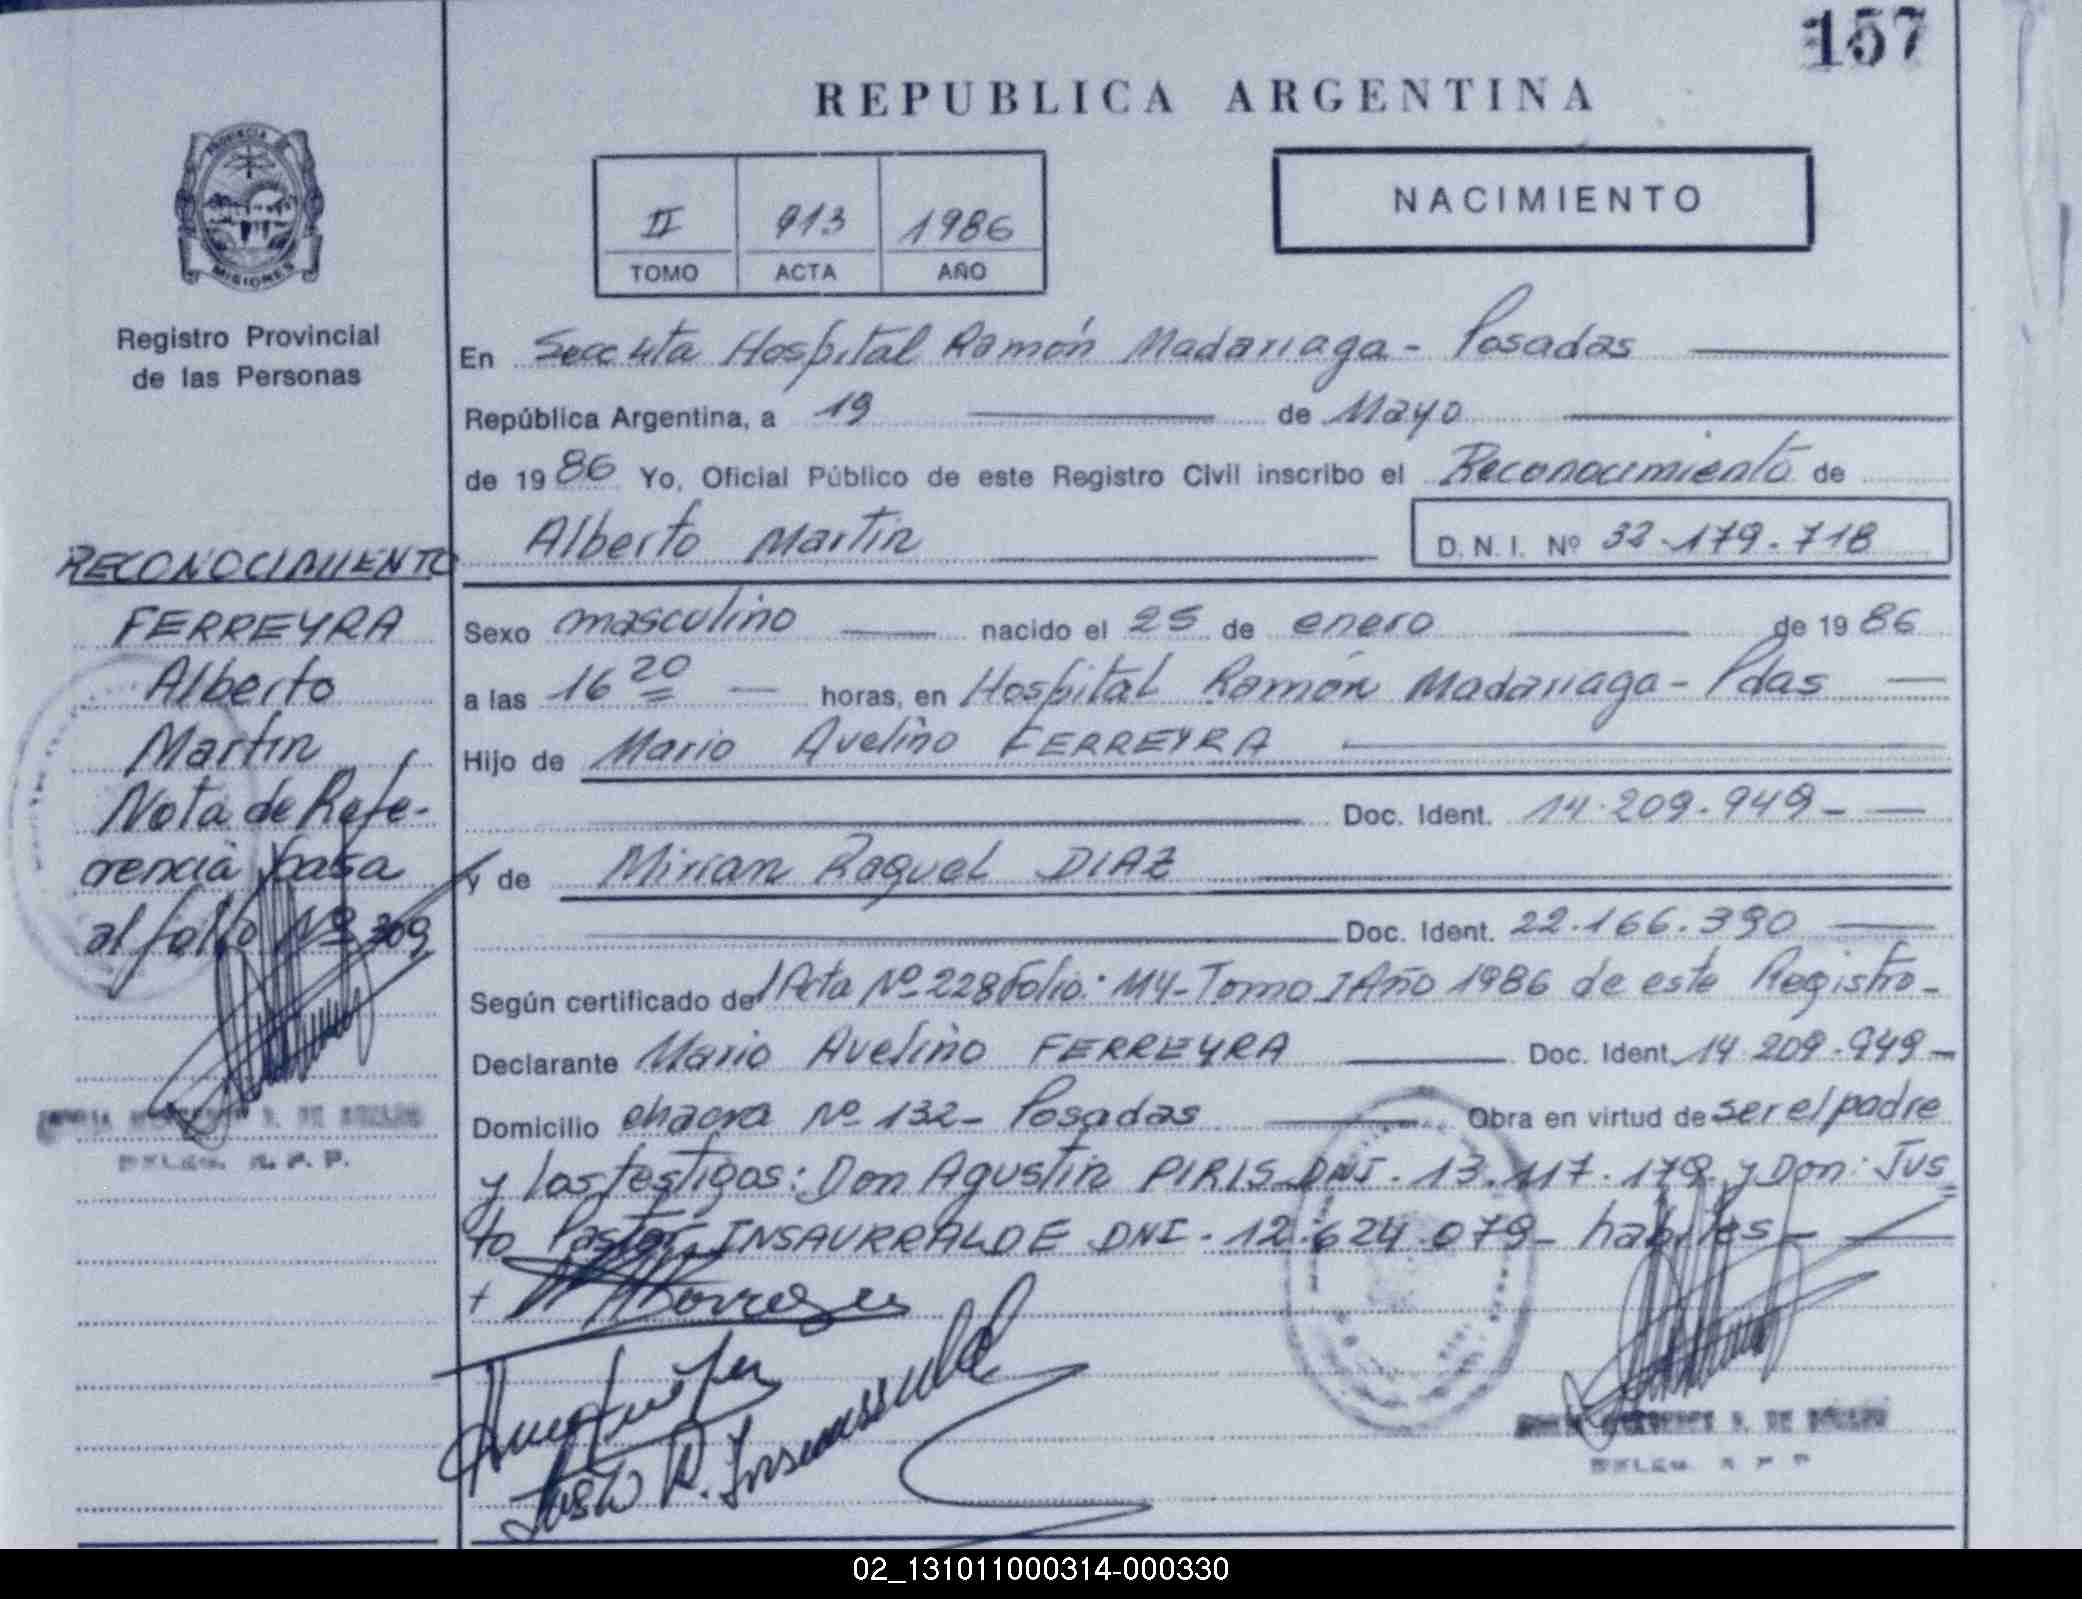 157
REPUBLICA ARGENTINA
PROVINCIA DE
MISIONES
Registro Provincial
de las Personas
II 913 1986
TOMO ACTA AÑO
NACIMIENTO
En Secc 4ta Hospital Ramón Madariaga - Posadas
República Argentina, a 19 de Mayo
de 1986 Yo, Oficial Público de este Registro Civil inscribo el Reconocimiento de
Alberto Martin D.N.I. Nº 32.179.718
RECONOCIMIENTO
FERREYRA
Alberto
Martin
Nota de Refe-
rencia pasa
al folio Nº 309
Sexo masculino nacido el 25 de enero de 1986
a las 16 20 horas, en Hospital Ramón Madariaga - Pdas
Hijo de Mario Avelino FERREYRA
Doc. Ident. 14.209.949
y de Mirian Raquel DIAZ
Doc. Ident. 22.166.390
Según certificado del Acta Nº 228 folio: 114 - Tomo I Año 1986 de este Registro -
Declarante Mario Avelino FERREYRA Doc. Ident. 14.209.949 -
Domicilio chacra Nº 132 - Posadas Obra en virtud de ser el padre
y los testigos: Don Agustin PIRIS DNI. 13.117.179 y Don: Jus
to Pastor INSAURRALDE DNI. 12.624.079 - habiles -
02_131011000314-000330